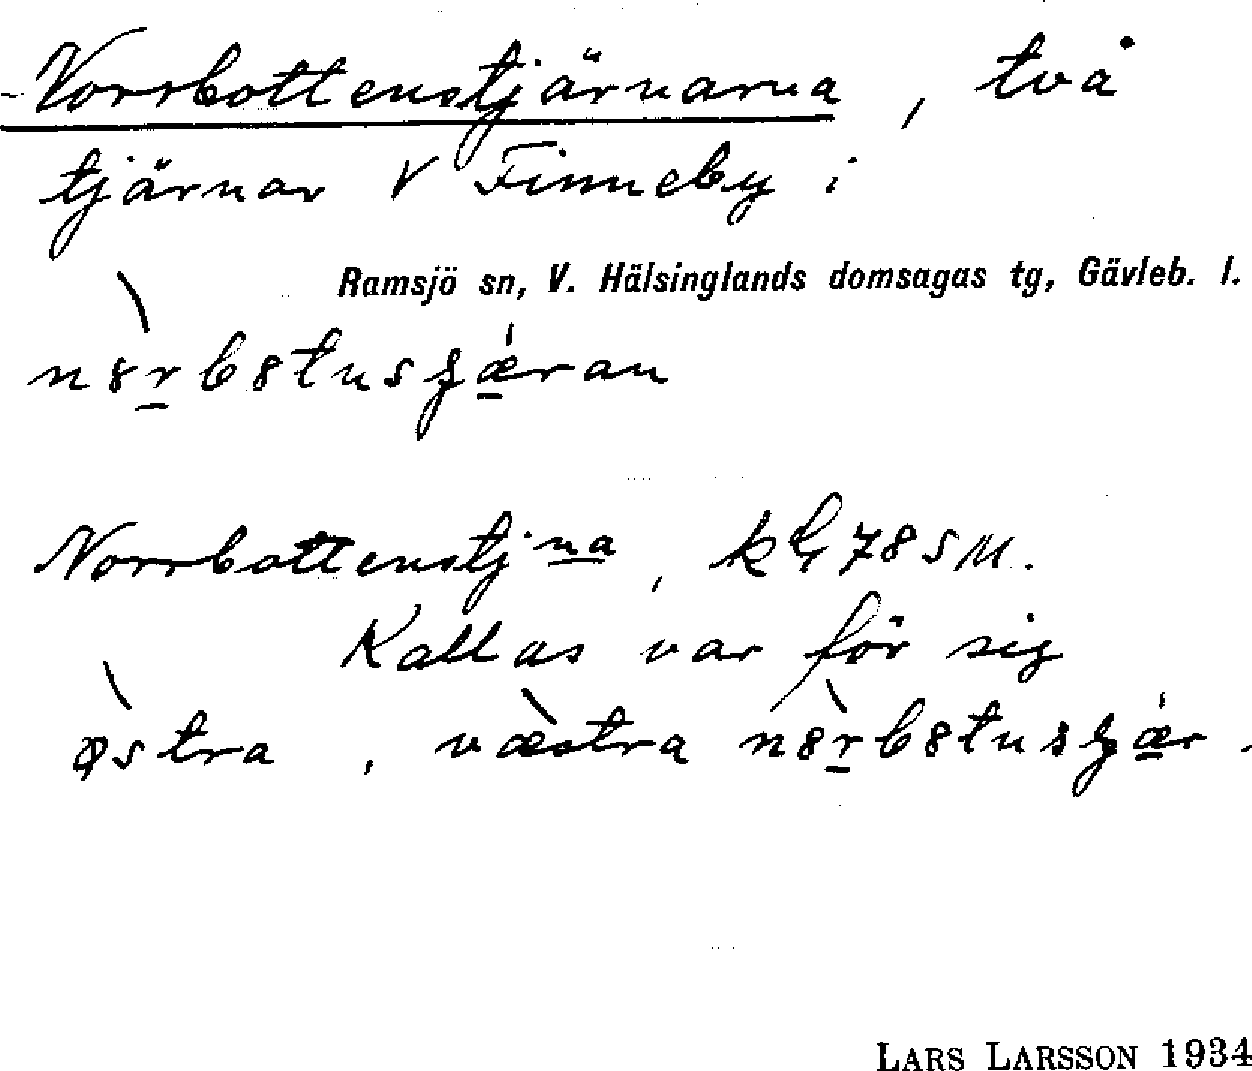 Norrbottenstjärnarna, två
tjärnar V Finneby i
Ramsjö sn, V. Hälsinglands domsagas tg, Gävleb. l.
Norrbottenstj na, kbl 78 SM.
Kallas var för sig
østra, væstra
LARS LARSSON 1934